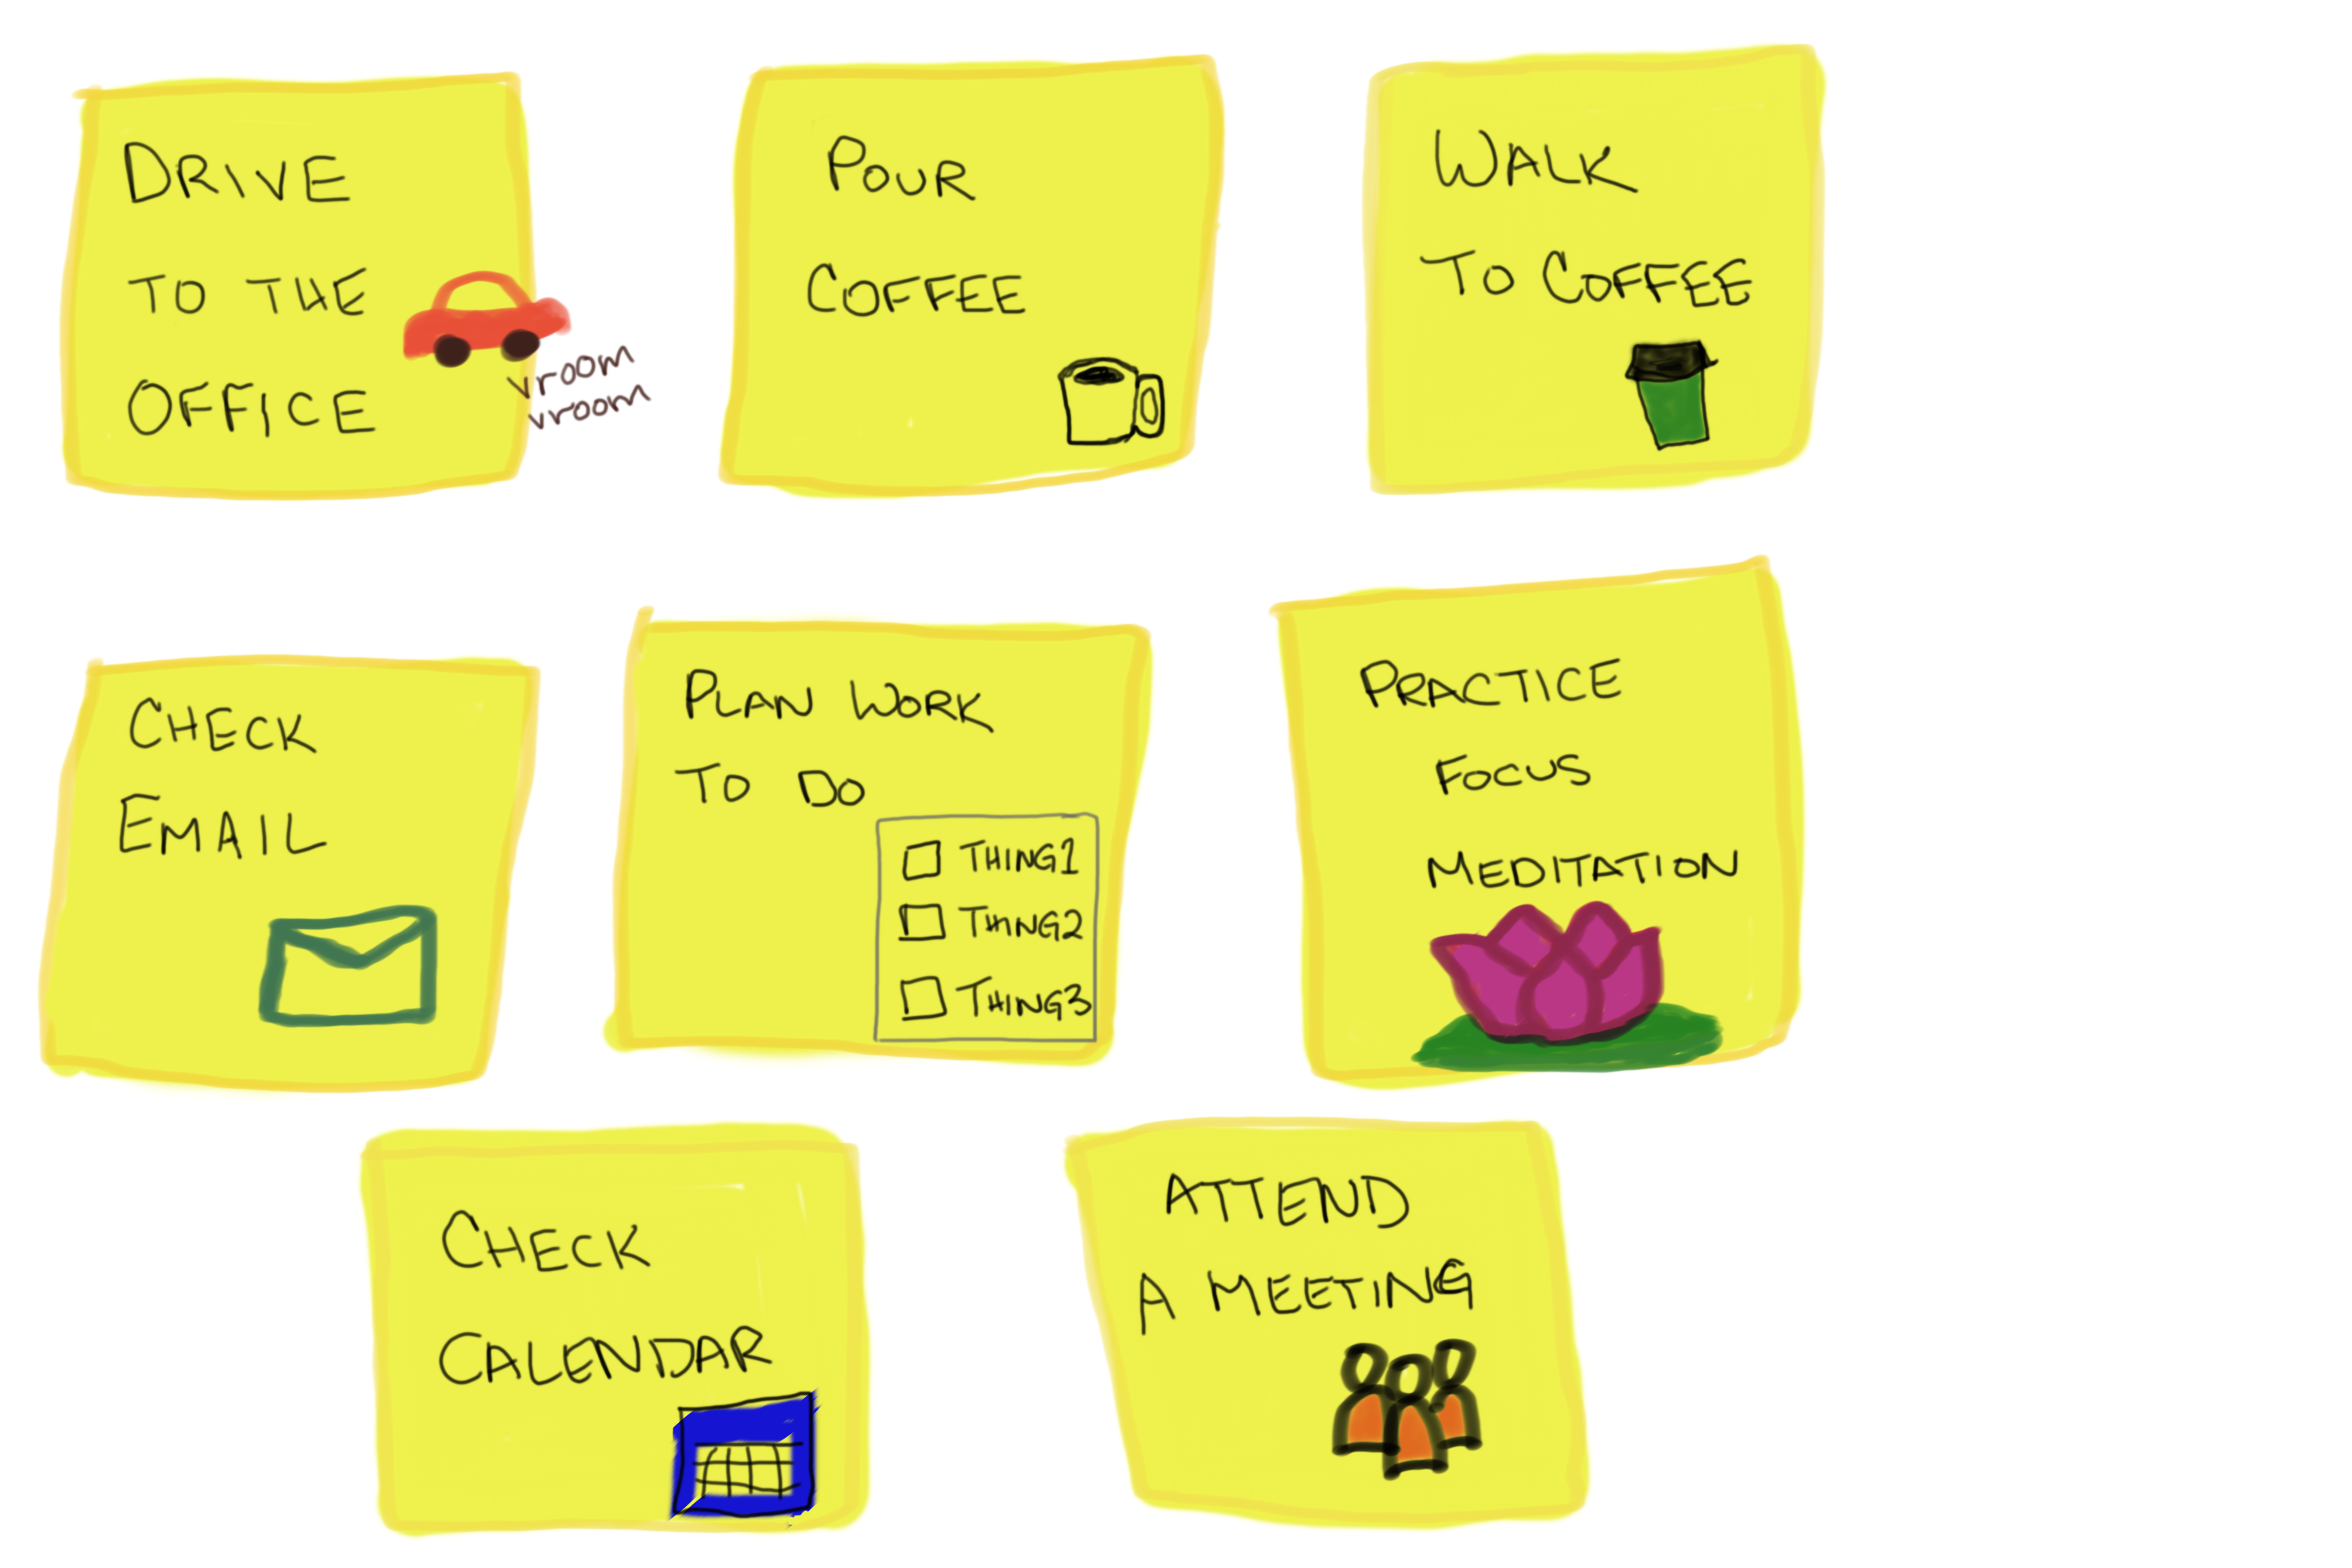 DRIVE
TO THE
OFFICE
vroom
vroom
POUR
COFFEE
WALK
TO COFFEE
CHECK
EMAIL
PLAN WORK
TO DO
THING1
THING2
THING3
PRACTICE
FOCUS
MEDITATION
CHECK
CALENDAR
ATTEND
A MEETING